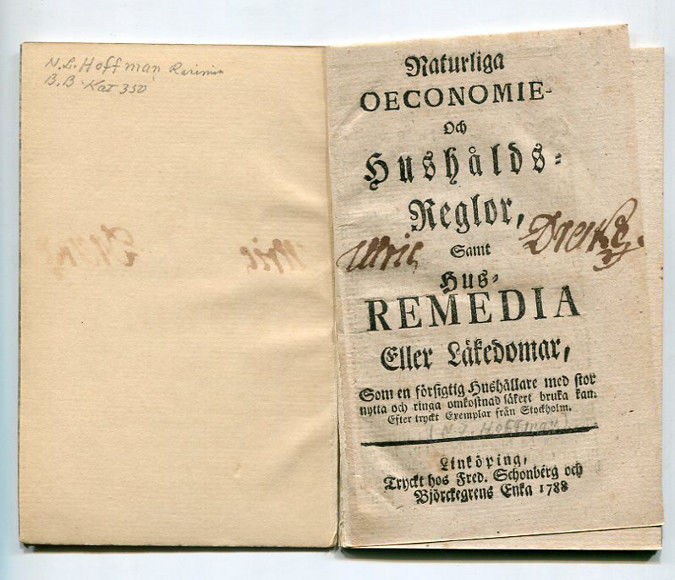 N.L. Hoffman
B.B. Kat 350
Naturliga
OECONOMIE-
Och
Hushålds-
Reglor,
Ulric
Samt
Hus-
REMEDIA
Eller Läkedomar,
Som en försigtig Hushållare med stor
nytta och ringa omkostnad säkert bruka kan.
Efter tryckt Exemplar från Stockholm.
(N.L. Hoffman)
Linköping,
Tryckt hos Fred. Schonberg och
Björckegrens Enka 1788